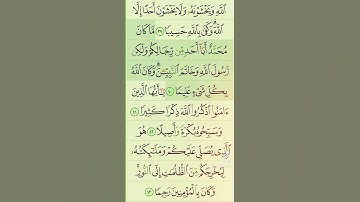 ٱللَّهِ وَيَخْشَوْنَهُۥ وَلَا يَخْشَوْنَ أَحَدًا إِلَّا
ٱللَّهَ وَكَفَىٰ بِٱللَّهِ حَسِيبًا ٣٩ مَّا كَانَ
مُحَمَّدٌ أَبَآ أَحَدٍ مِّن رِّجَالِكُمْ وَلَٰكِن
رَّسُولَ ٱللَّهِ وَخَاتَمَ ٱلنَّبِيِّـۧنَ وَكَانَ ٱللَّهُ
بِكُلِّ شَىْءٍ عَلِيمًا ٤٠ يَٰٓأَيُّهَا ٱلَّذِينَ
ءَامَنُوا۟ ٱذْكُرُوا۟ ٱللَّهَ ذِكْرًا كَثِيرًا ٤١
وَسَبِّحُوهُ بُكْرَةً وَأَصِيلًا ٤٢ هُوَ
ٱلَّذِى يُصَلِّى عَلَيْكُمْ وَمَلَٰٓئِكَتُهُۥ
لِيُخْرِجَكُم مِّنَ ٱلظُّلُمَٰتِ إِلَى ٱلنُّورِ
وَكَانَ بِٱلْمُؤْمِنِينَ رَحِيمًا ٤٣